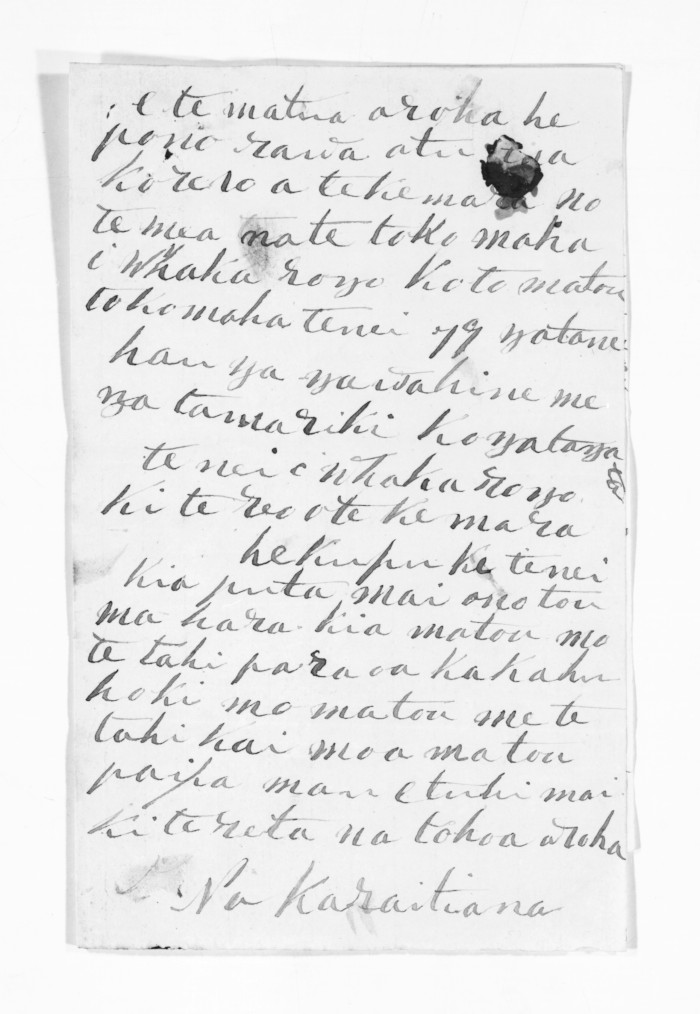 e te matua aroha he
pono rawa atu nga
korero a te Kemara no
te mea na te toko maha
i whaka rongo Ko to matou
tokomaha tenei 79 nga tane
hau nga nga wahine me
nga tamariki Ko nga tanga ta
te nei e whaka rongo
ki te reo o te Ke mara
he kupu ke tenei
Kia puta mai o no tou
ma hara kia matou mo
te tahi para oa ka kahu
hoki mo matou me te
tahi kai mo a matou
paipa mau e tuhi mai
ki te reta na to hoa aroha
Na Karaitiana